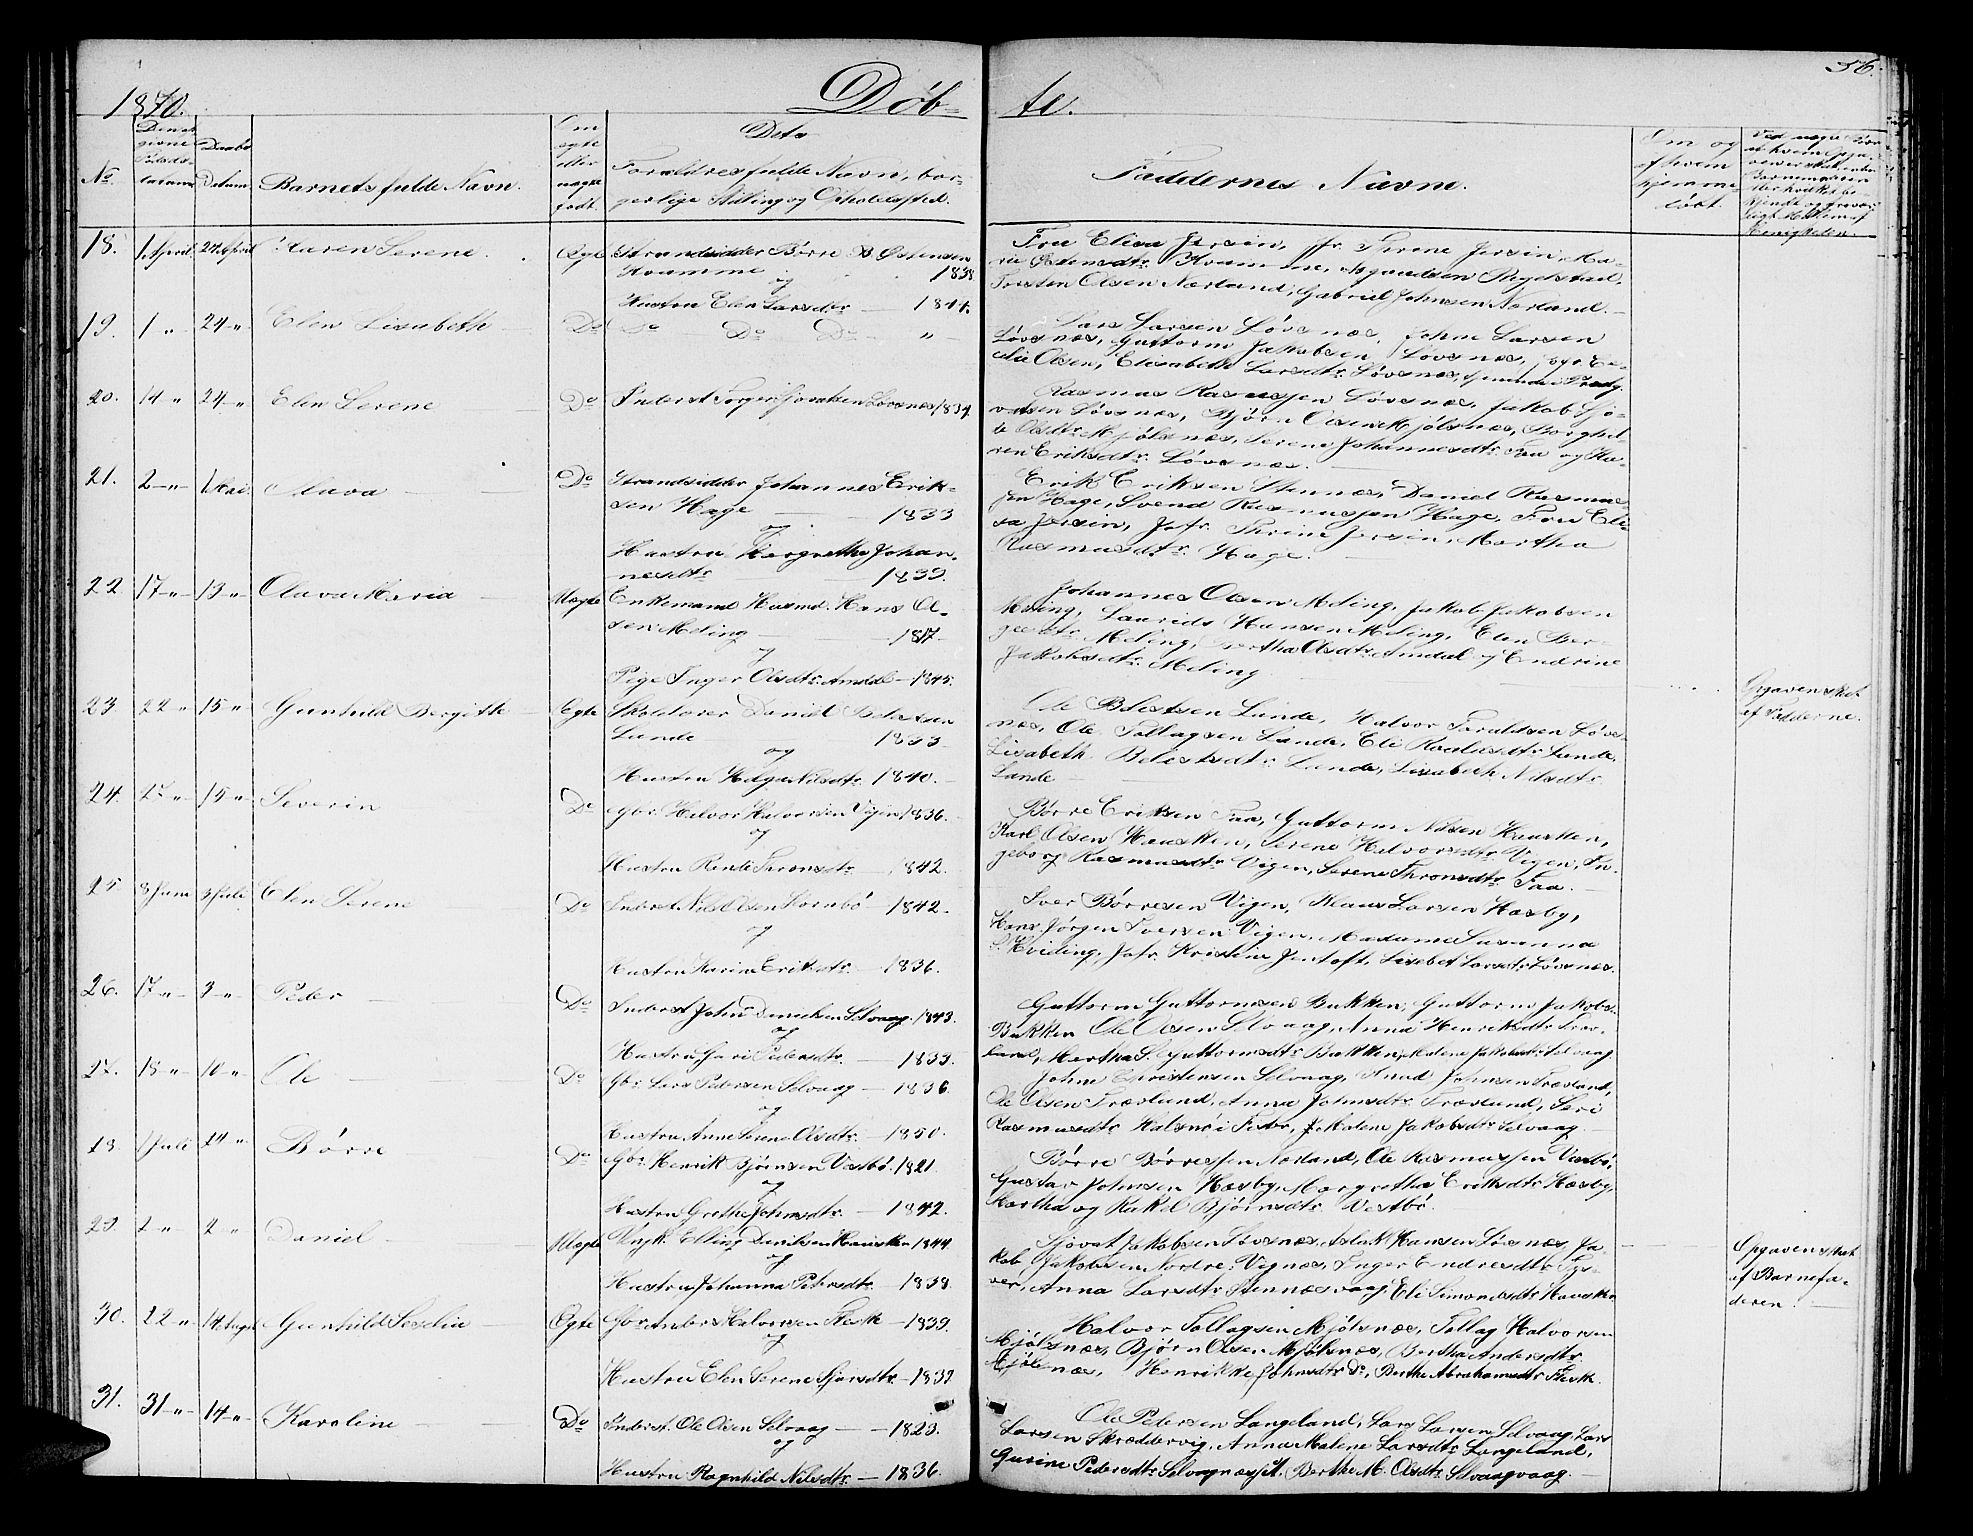 56.
1870. Døb- te.
No.
Daabs
Datum
Barnets fulde Navn.
Om
egte
eller
uægte
født.
Dets
Forældres fulde Navn, bor-
gerlige Stilling og Opholdssted.
Faddernes Navne.
Om og
af hvem
hjemme-
døbt.
18. 1 April 24 April Karen Serene. Ægte Strandsidder Børre B. Østensen
Kvamme 1838
og
Hustru Elen Larsdtr 1844.
Fru Elisa Jersin, Jfr. Serene Jersin, Ma-
rie Østensdtr Kvamme, Rygelstad,
Torsten Olsen Nærland, Gabriel Johnsen Nærland.
19. 1 " 24 " Elen Lisabeth Do Do Do Do "
Lars Larsen Løvsnæs, Johne Larsen
Løvsnæs, Guttorm Jakobsen Løvsnæs,
Olsen, Elisabeth Larsdtr Løvsnæs,
20. 14 " 24 " Elen Serene Do Inderst Torger Sjovatsen Løvsnæs 1834
Rasmus Rasmussen Løvsnæs, Jakob Sjo-
vatsen Løvsnæs, Bjørn Olsen Mjølsnæs, Borghil-
de Olsdtr Mjølsnæs, Serene Johannesdtr Faa og Ka-
ren Eriksdtr Løvsnæs.
21. 2 " 1 Mai Olava Do Strandsidder Johannes Erik-
sen Hage 1833
og
Hustru Margrethe Johan-
nesdtr 1839.
Erik Eriksen Stennæs, Daniel Rasmus-
sen Hage, Svend Rasmussen Hage, Fru Eli-
sa Jersin, Jfr. Thrine Jersin, Martha
Rasmusdtr Hage.
22 17 " 13 " Olava Maria Uægte Enkemand Husmd. Hans Ol-
sen Meling 1817
og
Pige Inger Olsdtr Amdal 1845.
Johannes Olsen Meling, Jakob Jakobsen
Meling, Laurids Hansen Meling, Elen Ber-
Meling, Bertha Olsdtr Amdal og Endrine
Jakobsdtr Meling
Opgaven sket
af Fadderne.
23 22 " 15 " Gunhild Bergitte Ægte Skolelærer Daniel Belestsen
Lunde 1833
og
Hustru Helga Nilsdtr 1840.
Ole Belestsen Lunde, Halvor Toraldsen Løvs-
næs, Ole Tollagsen Lunde, Eli Lunde,
Lisabeth Belestsdtr Lunde, Lisabeth Nilsdtr
Lunde
24. 27 " 15 " Severin Do Gbr. Halvor Halvorsen Vigen 1836.
og
Hustru Rende Thronsdtr 1842.
Børre Eriksen Faa, Guttorm Nilsen Hausken,
Karl Olsen Hausken, Serene Halvorsdtr Vigen, In-
geborg Rasmusdtr Vigen, Serene Thronsdtr Faa.
25 8 Juni 3 Juli Elen Serene Do Inderst Nils Olsen Hornbø 1842.
og
Hustru Karine Eriksdtr 1836.
Iver Børresen Vigen, Klaus Larsen Hæsby,
Hans Jørgen Iversen Vigen, Madame Susanna
Hviding, Jfr. Kristine Jentoft, Lisebet Larsdtr Løvsnæs.
26. 17 " 3 " Peder Do Inderst John Danielsen Selvaag 1843.
og
Hustru Guri Pedersdtr 1833.
Guttorm Guttormsen Bukken, Guttorm Jakobs.
Bukken Ole Olsen Selvaag, Anna Henriksdtr Træs-
land, Martha S. Guttormsdtr Bukken, Malene Jakobsdtr Selvaag
27. 18 " 10 " Ole Do Gbr. Lars Pedersen Selvaag 1836.
og
Hustru Anne Serene Olsdtr 1850.
Johne Christensen Selvaag, Amund Johnsen Træsland,
Ole Olsen Træsland, Anna Johnsdtr Træsland, Seri
Rasmusdtr Halsnø i Fister, Malene Jakobsdtr Selvaag.
28 1 Juli 24 " Børre Do Gbr. Henrik Bjørnsen Vestbø 1821
og
Hustru Grethe Johnsdtr 1842.
Børre Børresen Nærland, Ole Rasmussen Vestbø,
Gustav Johnsen Hæsby, Margretha Eriksdtr Hæsby,
Martha og Rakel Bjørnsdtr Vestbø.
29. 2 " 2 " Daniel Uægte Ungk. Elling Danielsen Hausken 1844.
og
Hustru Johanna Petersdtr 1838.
Sjovat Jakobsen Løvsnæs, Aslak Hansen Løvsnæs, Ja-
kob Jakobsen Nordre Vignæs, Inger Endresdtr Tys-
ver, Anna Larsdtr Stennæsvaag, Eli Simonsdtr Hausken
Opgaven sket
af Barnefa-
deren.
30. 22 " 14 Aug. Gunhild Seselie Ægte Gbr. Anders Halvorsen Fleske 1839.
og
Hustru Elen Serene Sjursdtr 1839
Halvor Tollagsen Mjølsnæs, Tollag Halvorsen
Mjølsnæs, Bjørn Olsen Mjølsnæs, Bertha Andersdtr
Mjølsnæs, Henrikke Johnsdtr Do, Berthe Abrahamsdtr Fleske.
31. 31 " 14 " Karoline Do Inderst. Ole Olsen Selvaag 1823.
og
Hustru Ragnhild Nilsdtr 1836.
Ole Pedersen Langeland, Lars Larsen Selvaag, Lars
Larsen Skræddervig, Anna Malene Larsdtr Langeland,
Gurine Pedersdtr Selvaagnæsset, Berthe M. Olsdtr Selvaagvaag.